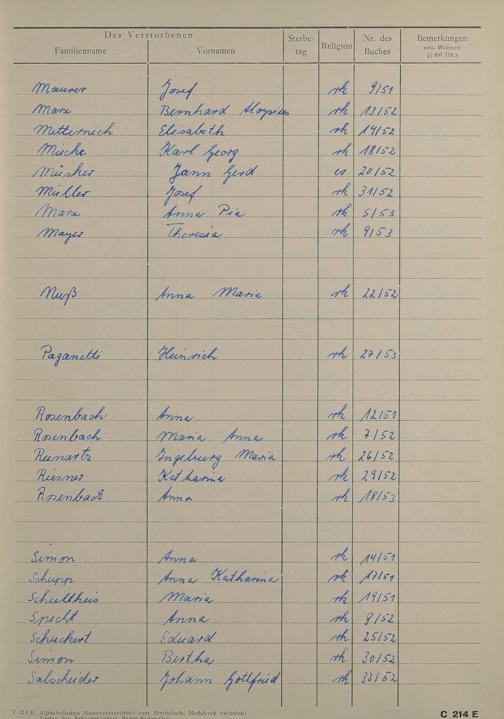 Des Verstorbenen
Familienname Vornamen Sterbe-tag Religion Nr. des Buches Bemerkungen evtl. Wohnort
Maurer Josef rk 9/51
Marx Bernhard Aloysius rk 13/52
Metternich Elisabeth rk 14/52
Mische Karl Georg rk 18/52
Müsker Jann Gerd ev 20/52
Müller Josef rk 31/52
Marx Anna Pia rk 5/53
Mayer Theresia rk 9/53
Nuß Anna Maria rk 22/52
Paganetti Heinrich rk 27/53
Rosenbach Anna rk 12/51
Rosenbach Maria Anna rk 7/52
Reinartz Ingeburg Maria rk 26/52
Riesner Katharina rk 29/52
Rosenbach Anna rk 18/53
Simon Anna rk 14/51
Schupp Anna Katharina rk 17/51
Schultheis Maria rk 19/51
Specht Anna rk 8/52
Schuckert Eduard rk 25/52
Simon Bertha rk 30/52
Salscheider Johann Gottfried rk 33/52
C 214 E. Alphabetisches Namensverzeichnis zum Sterbebuch. Nachdruck verboten!
C 214 E